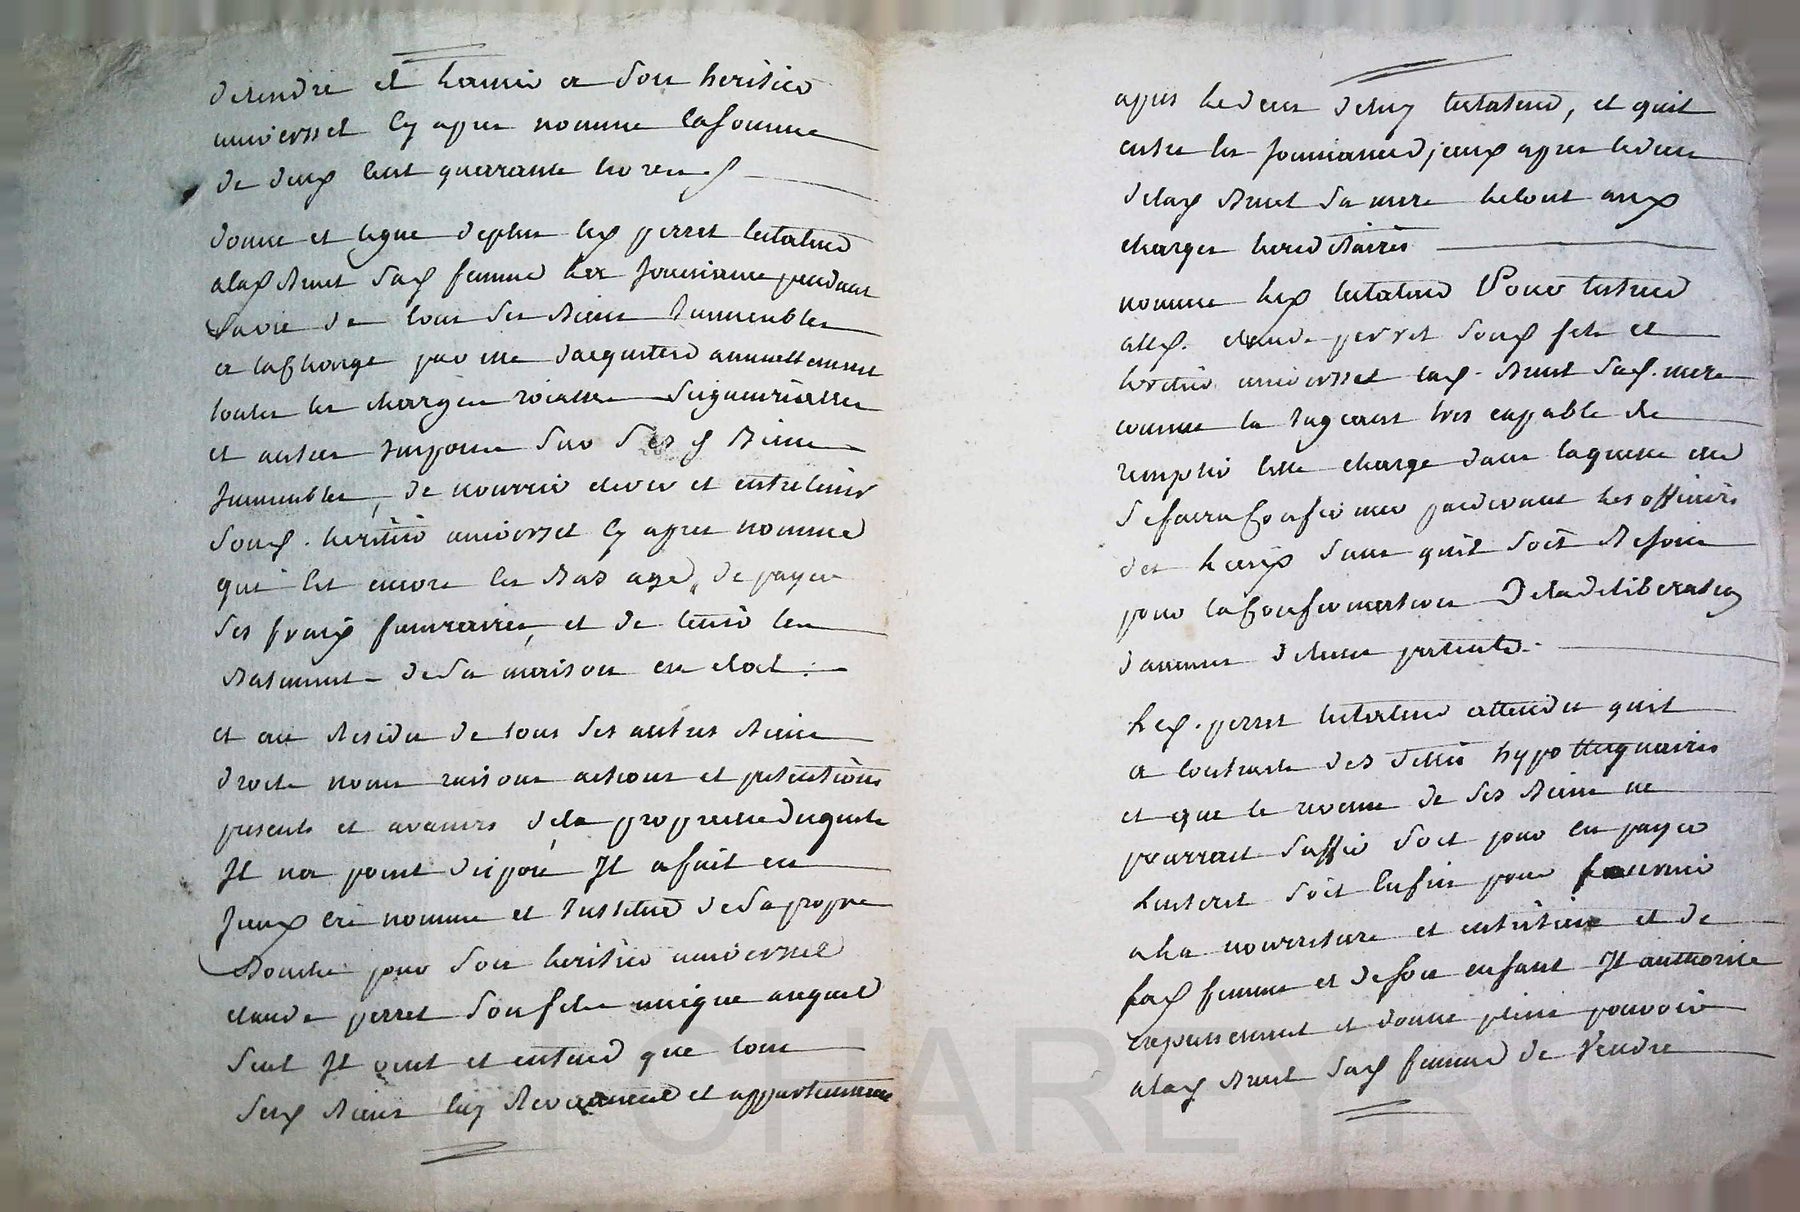 derendre et
a son heritier
universel cy apres nomme la somme
de deux cent quarante livres
donne et legue de plus led. perret testateur
a lad. Brunet sad. femme les jouissance pendant
sa vie de tous ses Biens Immeubles
a la charge par elle dacquiter annuellement
toutes les charges roialles seigneurialles
et autres imposée sur ses d. Biens
Immeubles, de nourrir elever et entretenir
son d. heritier universel cy apres nomme
qui est encore en Bas age, de payer
ses fraix funeraires, et de tenir les
Batiments de sa maison en etat.
et au Residu de tous ses autres Biens
droits noms raisons actions et pretentions
presents et avenirs de la propriete desquels
Il na point dispose Il a fait en
iceux cree nomme et Institue de sa propre
Bouche pour son heritier universel
claude perret son fils unique auquel
seul Il veut et entend que tous
sesd. Biens luy Reviennent et appartiennent
apres le deces deluy testateur, et quil
entre en jouissance diceux apres le deces
delad. Brunet sa mere le tout aux
charges hereditaires
nomme led. testateur Pour tutrice
aud. claude perret sond. fils et
heritier universel lad. Brunet sad. mere
comme la Jugeant tres capable de
remplir cette charge dans laquelle elle
se faira Confirmer pardevant les officiers
des lieux sans quil soit Besoin
pour la Confirmation De la deliberation
daucuns de leurs parents.
Led. perret testateur attendu quil
a contracte des dettes hypottequaires
et que le revenu de ses Biens ne
pourrait suffir soit pour en payer
linterest soit enfin pour fournir
a la nourriture et entretien et de
sad. femme et de son enfant Il authorise
expressement et donne plein pouvoir
a lad. Brunet sad. femme de Vendre
CHAREYRON